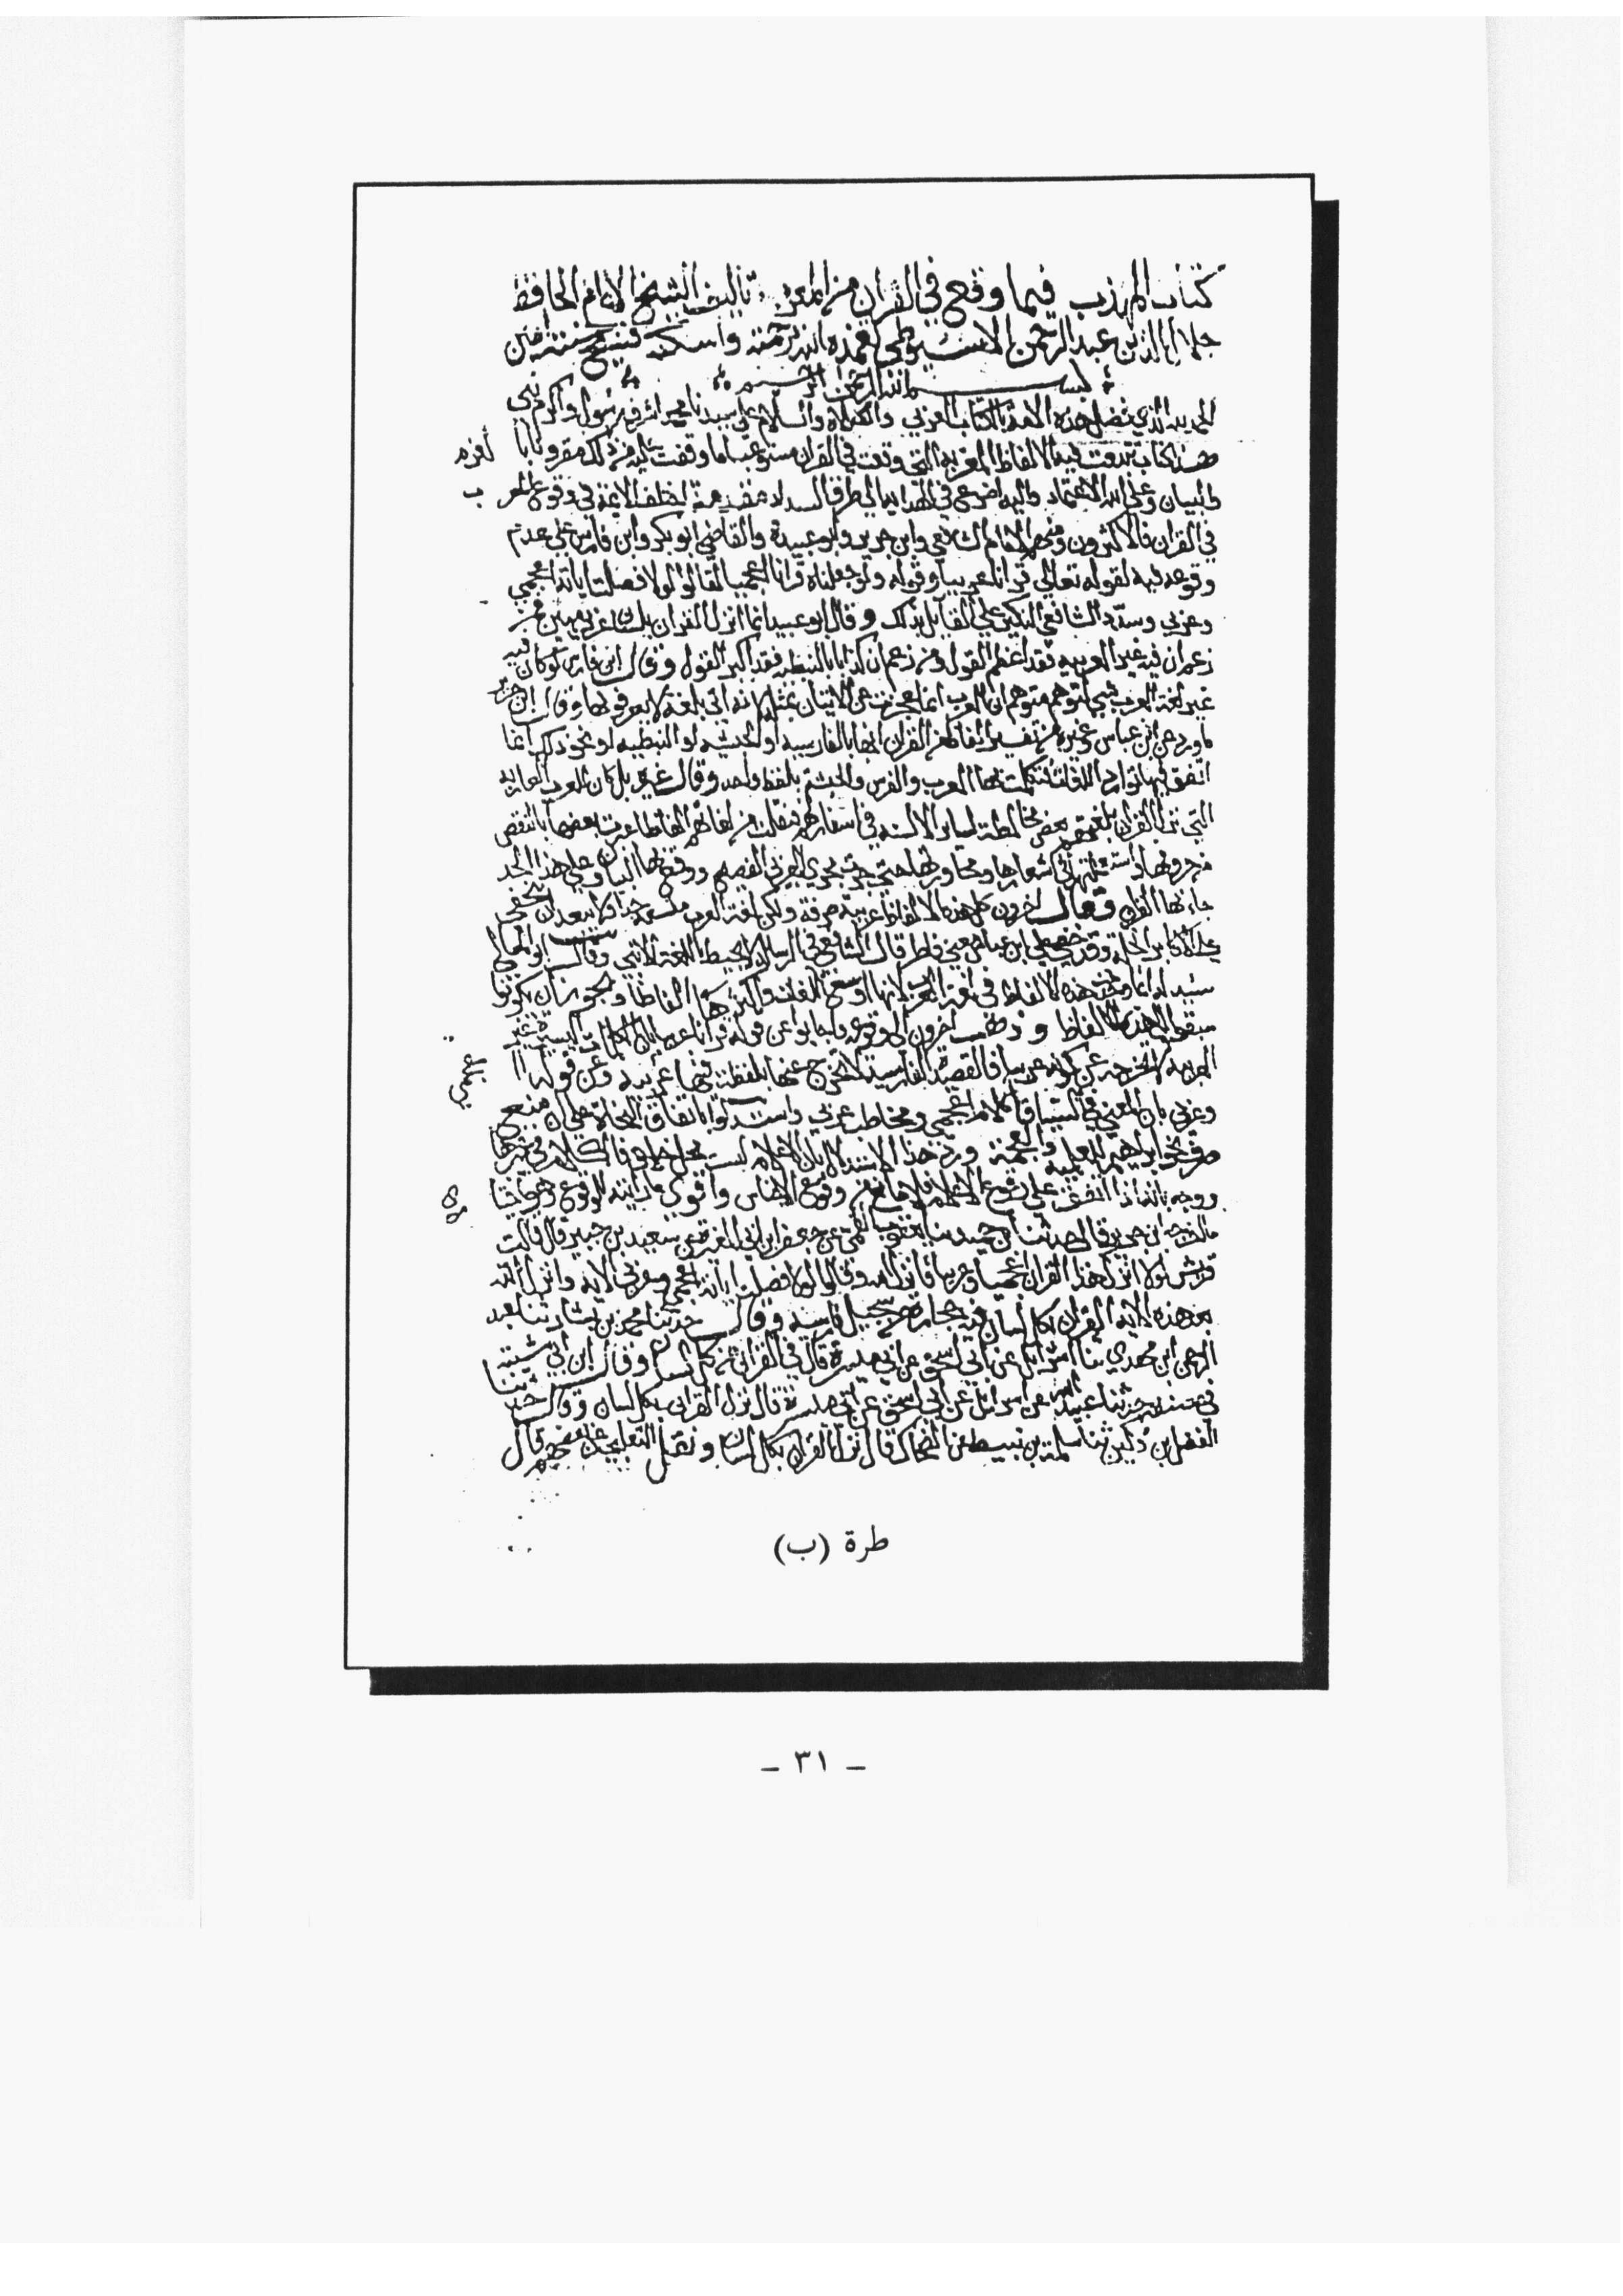 كتاب المهذب فيما وقع في القران من المعرب تاليف الشيخ الامام الحافظ
جلال الدين عبد الرحمن الاسيوطي تغمده الله برحمته واسكنه فسيح جنته امين
بسم الله الرحمن الرحيم
الحمد لله الذي فضل هذه الامة بالكتاب العربي والصلاة والسلام علي سيدنا محمد اشرف رسول واكرم نبي
هذا كتاب تتبعت فيه الالفاظ المعربة التي وقعت في القران مستوعبا ما وقفت عليه من ذلك مقرونا با
والبيان وعلي الله الاعتماد واليه اضرع في الهداية الي طرق السداد مقدمة اختلف الايمة في وقوع المعرب
في القران فالاكثرون ومنهم الامام الشافعي وابن جرير وابو عبيدة والقاضي ابو بكر وابن فارس علي عدم
وقوعه فيه لقوله تعالي قرانا عربيا وقوله ولو جعلناه قرانا اعجميا لقالوا لولا فصلت اياته اعجمي
وعربي وشدد الشافعي النكير علي القايل بذلك وقال ابو عبيد انما انزل القران بلسان عربي مبين فمن
زعم ان فيه غير العربيه فقد اعظم القول ومن زعم ان كذابا بالنبطيه فقد اكبر القول وقال ابن فارس لو كان فيه
غير لغة العرب شي لتوهم متوهم ان العرب انما عجزت عن الاتيان بمثله لانه اتي بلغة لا يعرفونها وقال ابن جرير
ما ورد عن ابن عباس وغيره من تفسير الفاظ من القران انها بالفارسيه او الحبشيه او النبطيه او نحو ذلك انما
اتفق فيها توارد اللغات فتكلمت بها العرب والفرس والحبشة بلفظ واحد وقال غيره بل كان للعرب العاربة
التي نزل القران بلغتهم بعض مخالطة لساير الالسنه في اسفارهم فعلقت من لغاتهم الفاظا غيرت بعضها بالنقص
من حروفها واستعملتها في اشعارها ومحاوراتها حتي جرت مجري العربي الفصيح ووقع بها البيان وعلي هذا الحد
جاء بها القران وقال اخرون كل هذه الالفاظ عربية صرفة ولكن لغة العرب متسعة جدا ولا يبعد ان تخفي
علي الاكابر الجلة وقد خفي علي ابن عباس معني فاطر قال الشافعي في الرسالة لا يحيط باللغة الا نبي وقال ابو المعالي
شيدلة انما وجدت هذه الالفاظ في لغة العرب لانها اوسع اللغات واكثرها الفاظا ويجوز ان يكونوا
سبقوا الي هذه الالفاظ وذهب اخرون الي وقوعه فيه واجابوا عن قوله قرانا عربيا بان الكلمات اليسيرة بغير
العربية لا تخرجه عن كونه عربيا فالقصيدة الفارسية لا تخرج عنها بلفظة فيها عربية وعن قوله اا
عجمي
وعربي بان المعني في السياق اكلام اعجمي ومخاطب عربي واستدلوا باتفاق النحاة علي ان منع
صرف نحو ابراهيم للعلمية والعجمة ورد هذا الاستدلال بان الاعلام ليست محل خلاف فالكلام في غيرها
ووجه بانه اذا اتفق علي وقوع الاعلام فلا مانع من وقوع الاجناس واقوي ما رايته للوقوع وهو
ما اخرجه ابن جرير قال حدثنا ابن حميد ثنا يعقوب القمي عن جعفر ابن ابي المغيرة عن سعيد بن جبير قال قالت
قريش لولا انزل هذا القران اعجميا وعربيا فانزل الله وقالوا لولا فصلت اياته اعجمي وعربي الاية وانزل الله
بعد هذه الاية القران بكل لسان فيه حجارة من سجيل فارسية وقال حدثنا محمد بن بشار ثنا عبد
الرحمن ابن مهدي ثنا اسرائيل عن ابي اسحق عن ابي ميسرة قال في القران من كل لسان وقال ابن ابي شيبة
في مصنفه حدثنا عبيد الله عن اسرائيل عن ابي اسحق عن ابي ميسرة قال نزل القران بكل لسان وقال حدثنا
الفضل بن دكين ثنا سلمة بن نبيط عن الضحاك قال نزل القران بكل لسان ونقل الثعلبي عن بعضهم قال
طرة (ب)
– ٣١ –